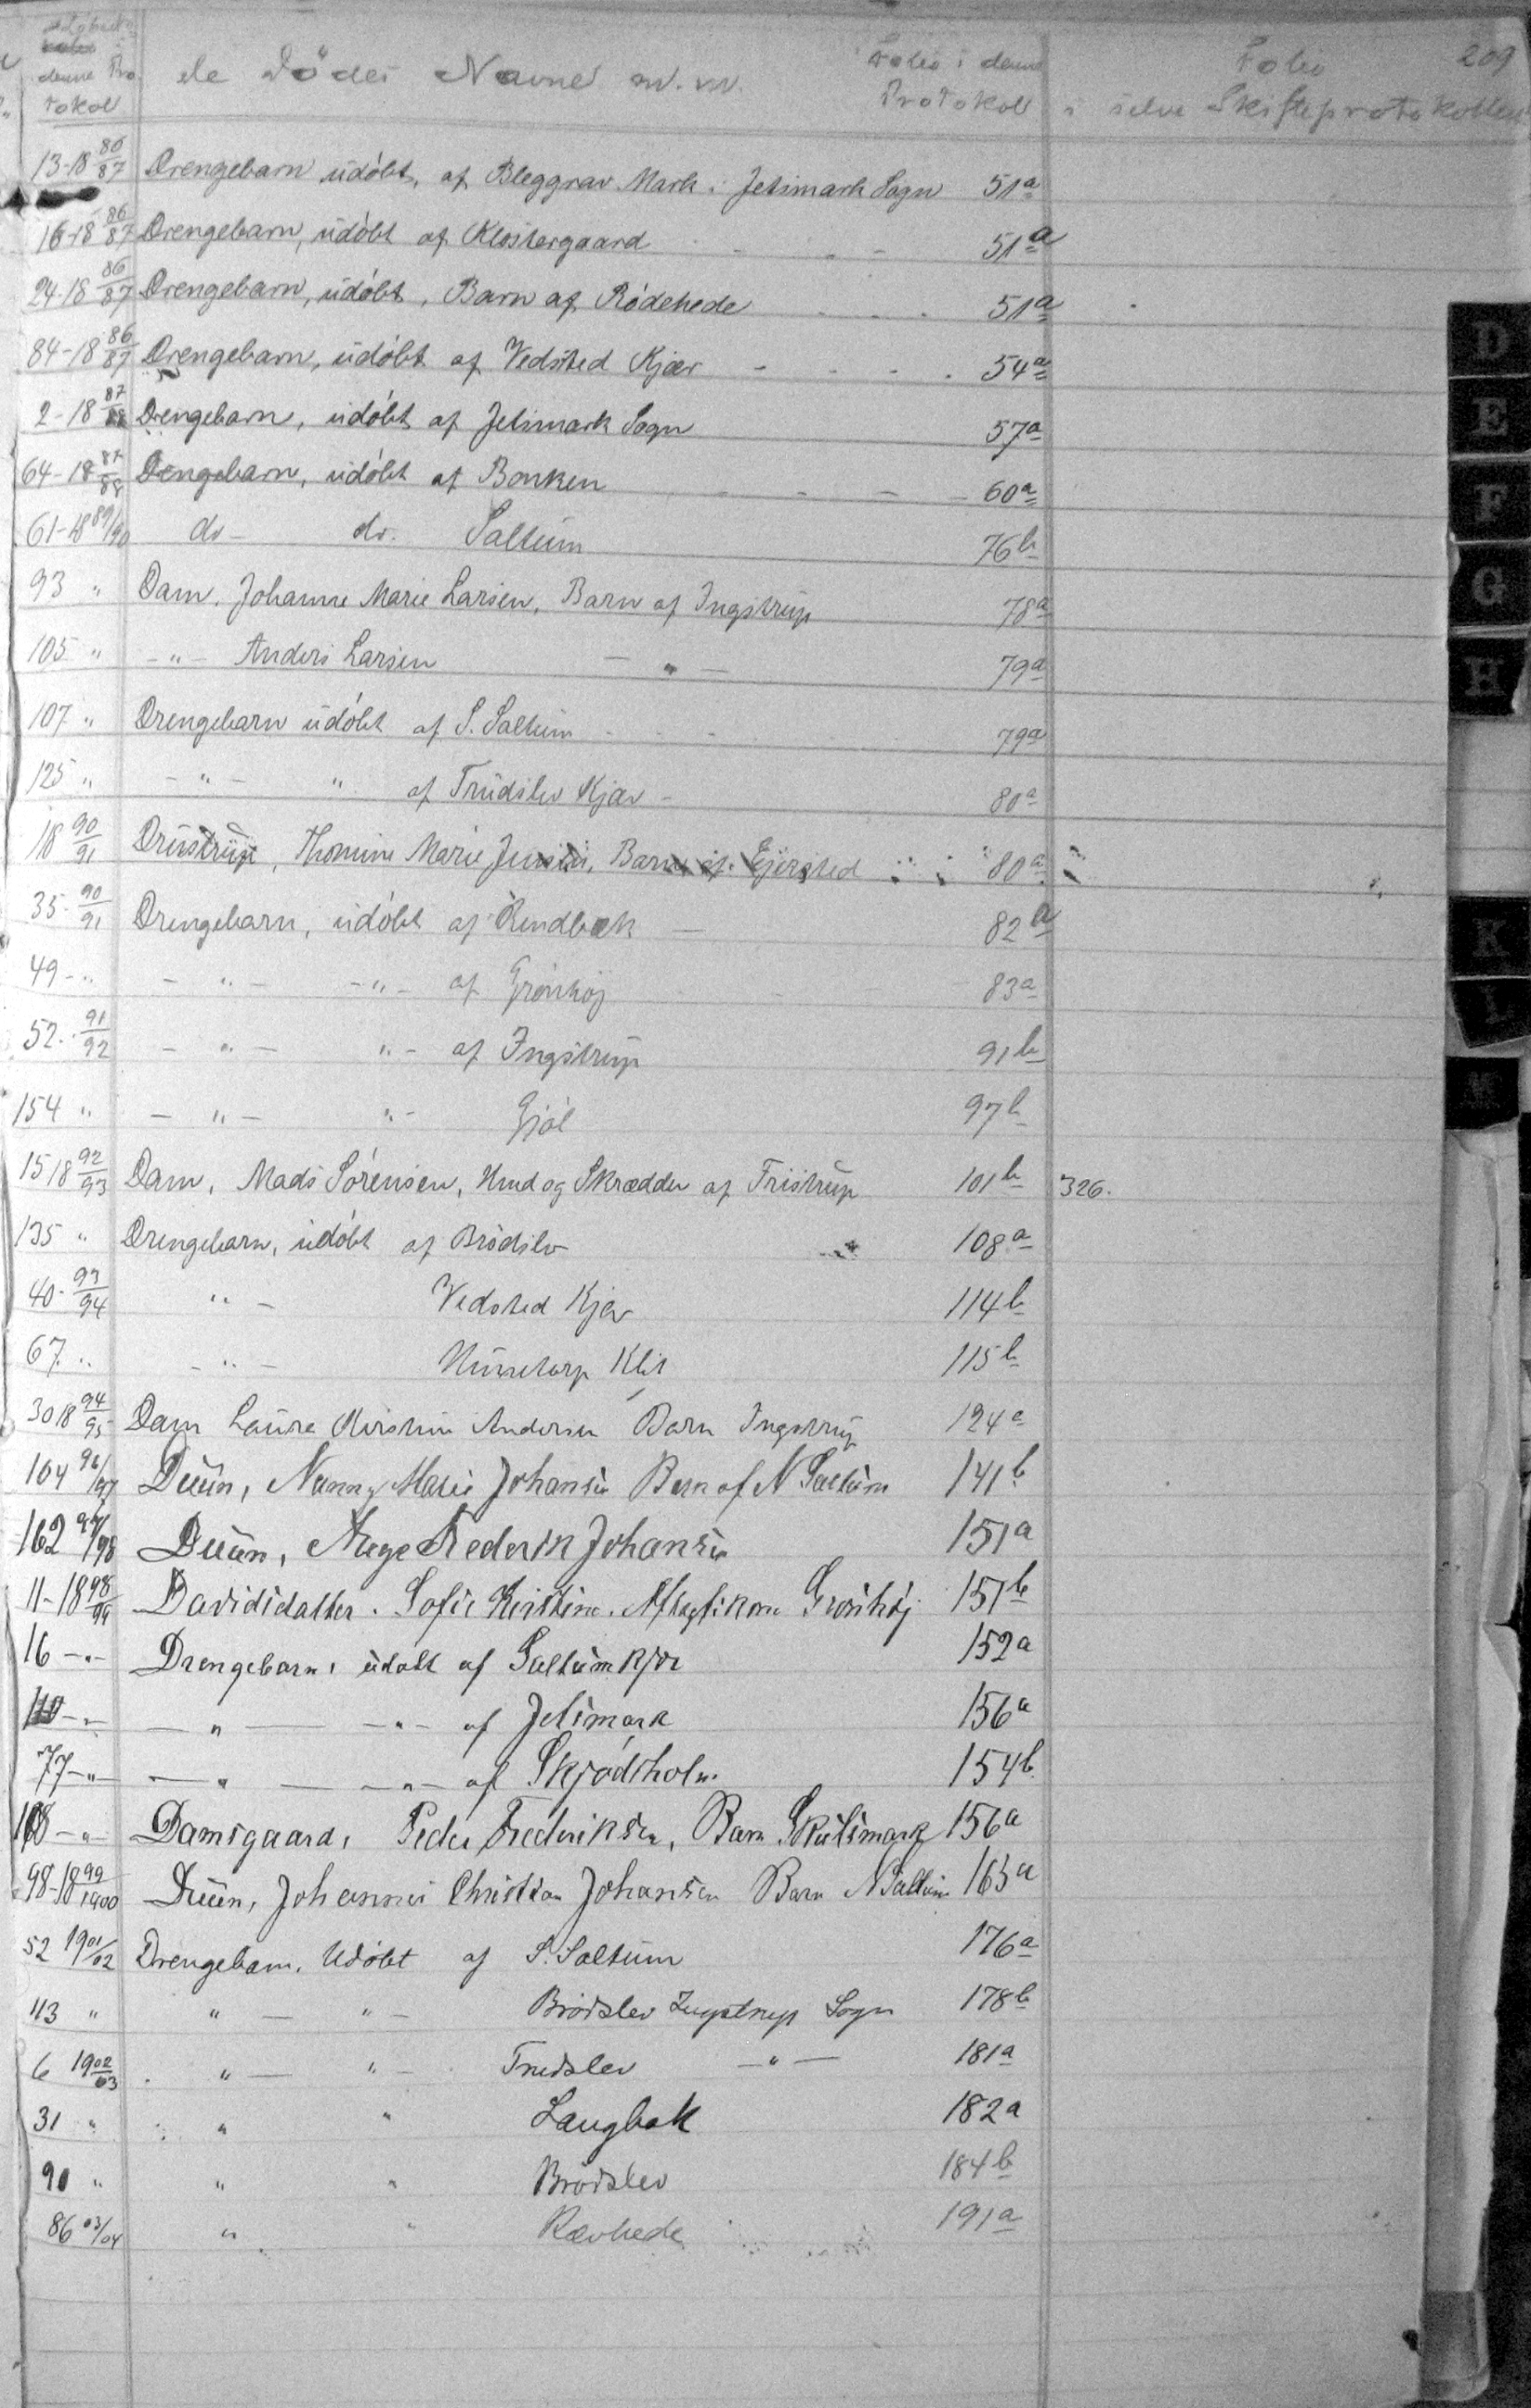 Løbe No
i
denne Pro
tokol
de Dødes Navne m.m.
Folio i denne
Protokol
Folio
i selve Skifteprotokollen
209
13-18 86/87 Drengebarn udøbt, af Bleggrav Mark i Jetsmark Sogn 51a
16-18 86/87 Drengebarn, udøbt af Klostergaard 51a
24-18 86/87 Drengebarn, udøbt, Barn af Rødehede 51a
84-18 86/87 Drengebarn, udøbt af Vedsted Kjær 54a
2-18 87/88 Drengebarn, udøbt af Jetsmark Sogn 57a
64-18 87/88 Drengebarn, udøbt af Bonken 60a
61-18 89/90 do do. Saltum 76b
93 " Dam, Johanne Marie Larsen, Barn af Ingstrup 78a
105 " -"- Anders Larsen -"- 79a
107 " Drengebarn udøbt af S. Saltum 79a
125 " -"- " af Trudslev Kjær 80a
18 90/91 Drustrup, Thomine Marie Jensen, Barn af Ejersted 80a
35- 90/91 Drengebarn, udøbt af Rendbæk 82b
49-" -"- -"- af Grønhøj 83a
52- 91/92 -"- "- af Ingstrup 91b
154 " -"- "- Gjøl 97b
15 18 92/93 Dam, Mads Sørensen, Hmd og Skrædder af Fristrup 101b 326.
135 " Drengebarn, udøbt af Brødslv 108a
40- 93/94 "- Vedsted Kjær 114b
67 " -"- Hunetorp Klit 115b
30 18 94/95 Dam Laura Kirstine Andersen Barn Ingstrup 124a
104 96/97 Duun, Nanny Marie Johansen Barn af N Saltum 141b
162 97/98 Duun, Aage Frederik Johansen 151a
11-18 98/99 Davidsdatter. Sofie Kirstine. Aftægtskone Grønhøj 151b
16 -"- Drengebarn, udøbt af Saltumkjær 152a
-"- -"- -"- af Jetsmark 156a
77-"- -"- -"- af Skjødsholm 154b
108 -"- Damsgaard, Peder Frederiksen, Barn Skulsmark 156a
98-18 99/1900 Duun, Johannes Christian Johansen Barn N Saltum 163a
52 1901/02 Drengebarn, Udøbt af S. Saltum 176a
43 " " - " - Brødslev Ingstrup Sogn 178b
6 1902/03 " - " - Trudslev -"- 181a
31 " " " Langbæk 182a
90 " " " Brødslev 184b
86 03/04 " " Rævhede 191a
D
E
F
G
H
K
L
M